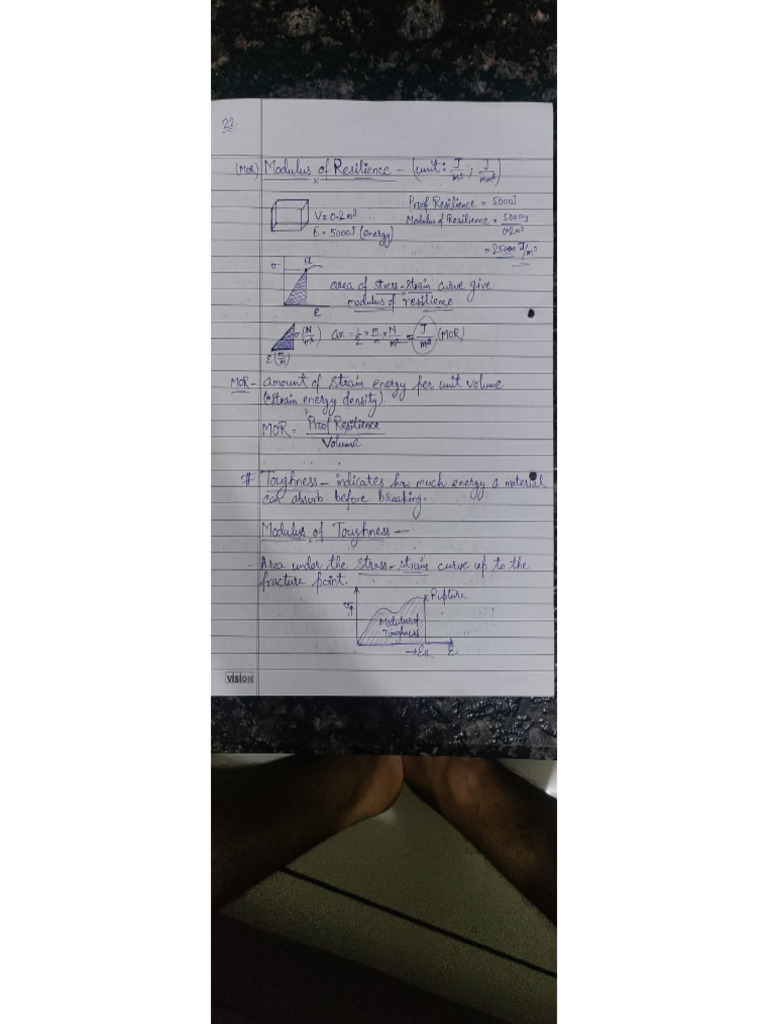 22
(MOR) Modulus of Resilience - (unit: J/m³, J/mm³)
V = 0.2m³
E = 5000J (energy)
Proof Resilience = 5000J
Modulus of Resilience = 5000J/0.2m³
= 25000 J/m³
σ
ε
area of stress-strain curve give
modulus of resilience
σ(N/m²) ar. = 1/2 × m/m × N/m² = J/m³ (MOR)
ε(m/m)
MOR - amount of strain energy per unit volume
(strain energy density).
MOR = Proof Resilience
Volume
# Toughness - indicates how much energy a material
can absorb before breaking.
Modulus of Toughness -
- Area under the stress-strain curve up to the
fracture point.
Rupture
Modulus of
Toughness
ε
vision